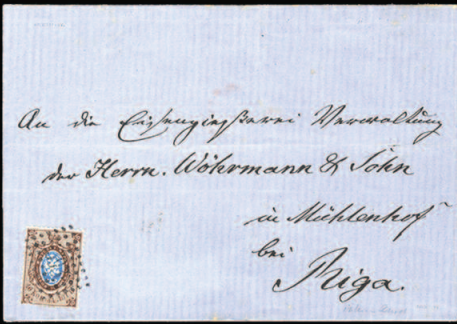 An die Eisengießerei Verwaltung
der Herrn. Wöhrmann & Sohn
in Mühlenhof
bei
Riga.